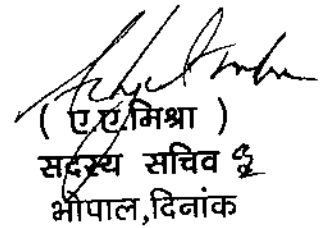 ( ए.ए.मिश्रा )
सदस्य सचिव
भोपाल,दिनांक